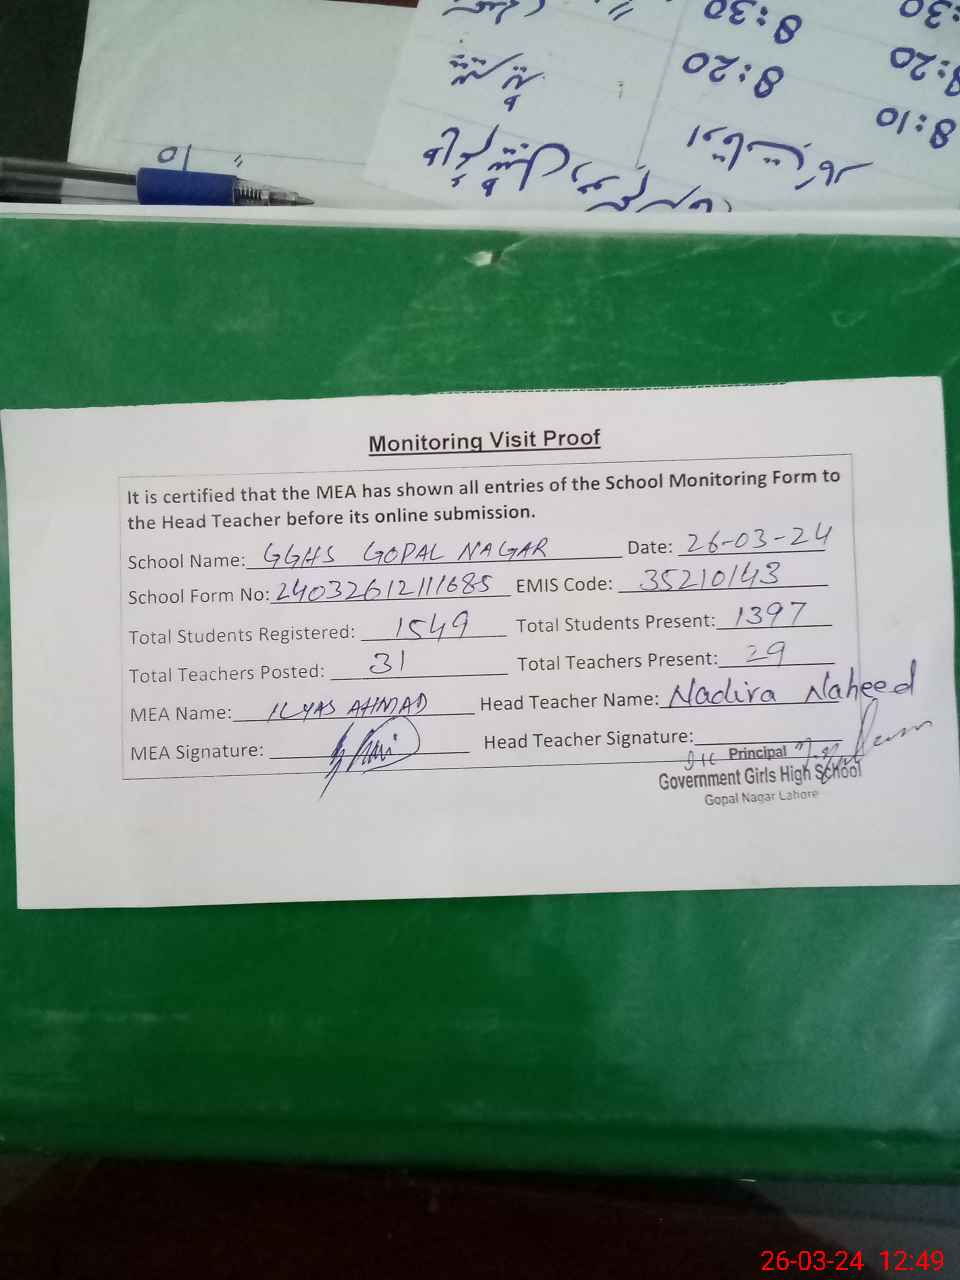 8:30
:30
8:20
8:20
8:10
10 "
Monitoring Visit Proof
It is certified that the MEA has shown all entries of the School Monitoring Form to
the Head Teacher before its online submission.
School Name: GGHS GOPAL NAGAR Date: 26-03-24
School Form No: 24032612111685 EMIS Code: 35210143
Total Students Registered: 1549 Total Students Present: 1397
Total Teachers Posted: 31 Total Teachers Present: 29
MEA Name: ILYAS AHMAD Head Teacher Name: Nadira Naheed
MEA Signature: Head Teacher Signature:
I/C Principal
Government Girls High School
Gopal Nagar Lahore
26-03-24 12:49